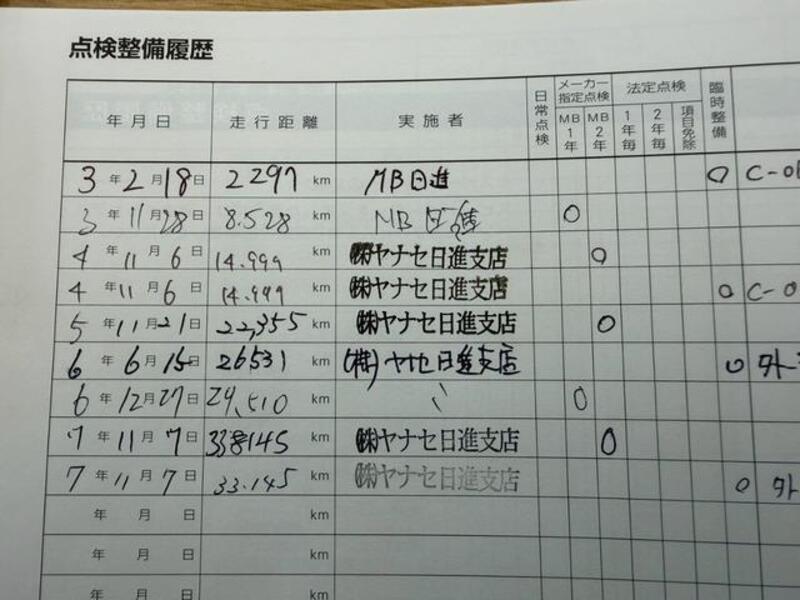 点検整備履歴
年月日 走行距離 実施者 日常点検 メーカー指定点検 MB1年 MB2年 法定点検 1年毎 2年毎 項目免除 臨時整備
3年2月18日 2297km MB日進 ○ C-0
3年11月28日 8.528km MB日進 ○
4年11月6日 14.999km ㈱ヤナセ日進支店 ○
4年11月6日 14.999km ㈱ヤナセ日進支店 ○ C-0
5年11月21日 22,355km ㈱ヤナセ日進支店 ○
6年6月15日 26531km (株)ヤナセ日進支店 ○ 外
6年12月27日 29,510km 〃 ○
7年11月7日 km ㈱ヤナセ日進支店 ○
7年11月7日 33.145km ㈱ヤナセ日進支店 ○ 外
年月日 km
年月日 km
年月日 km